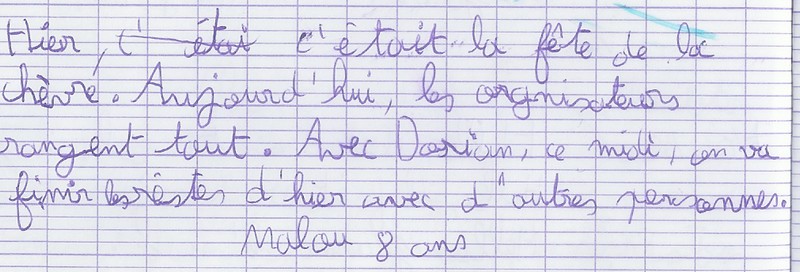 Hier, c' étai c'était la fête de la
chèvre. Aujourd'hui, les orgnisateurs
rangent tout. Avec Dorian, ce midi, on va
finir les réstes d'hier avec d'autres personnes.
Malou 8 ans